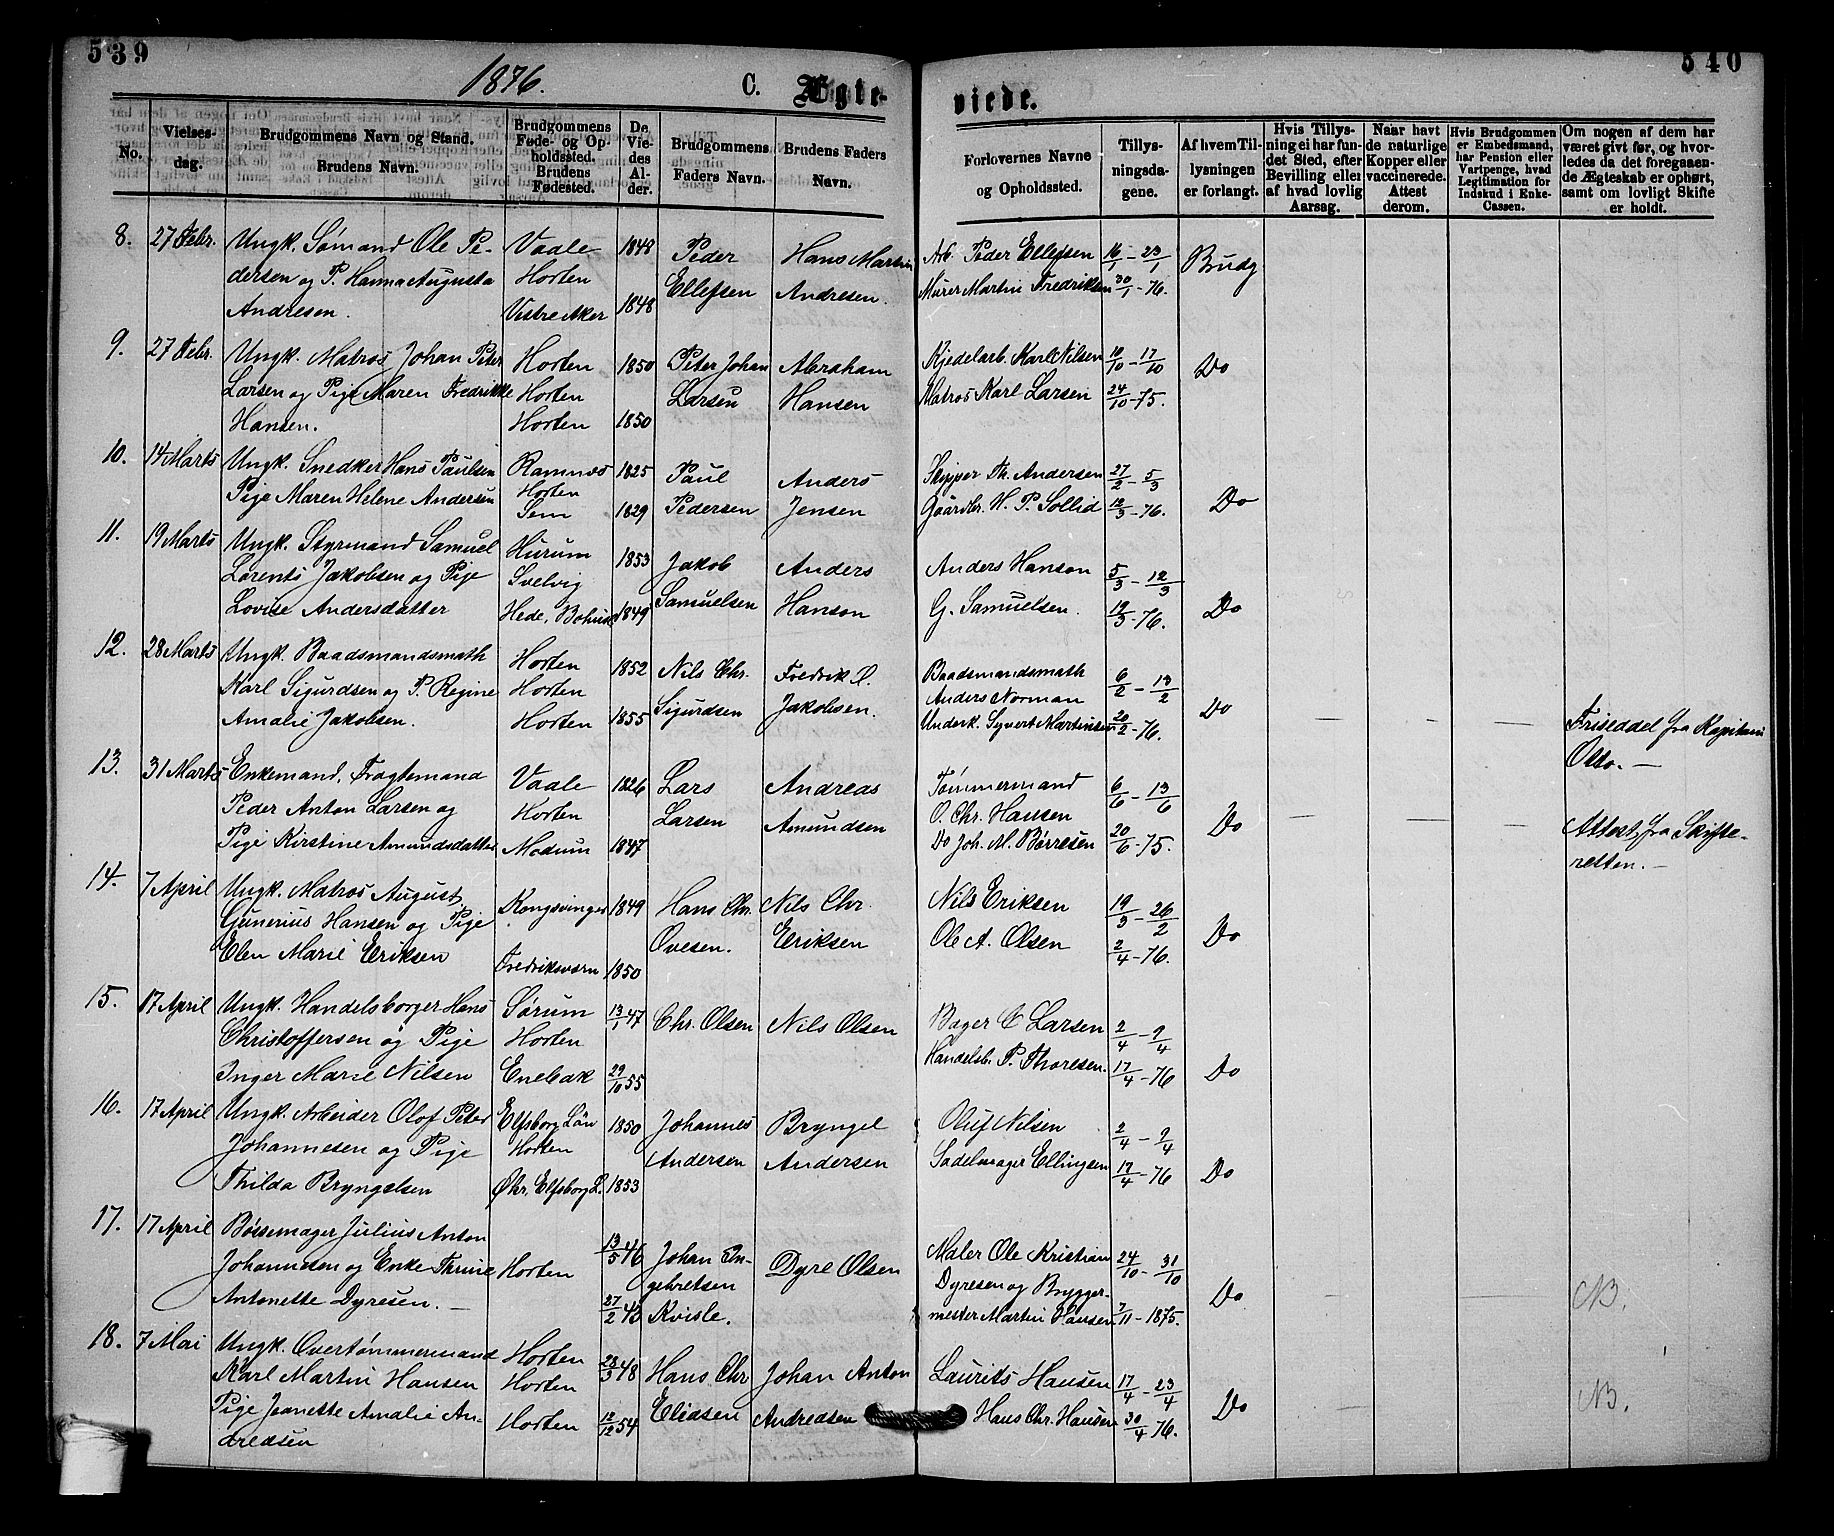 539
540
1876.
C. Ægte-
viede.
No.
Vielses-
dag.
Brudgommens Navn og Stand.
Brudens Navn.
Brudgommens
Føde- og Op-
holdssted.
Brudens
Fødested.
De
Vie-
des
Al-
der.
Brudgommens
Faders Navn.
Brudens Faders
Navn.
Forlovernes Navne
og Opholdssted.
Tillys-
ningsda-
gene.
Af hvem Til-
lysningen
er forlangt.
Hvis Tillys-
ning ei har fun-
det Sted, efter
Bevilling eller
af hvad lovlig
Aarsag.
Naar havt
de naturlige
Kopper eller
vaccinerede.
Attest
derom.
Hvis Brudgommen
er Embedsmand,
har Pension eller
Vartpenge, hvad
Legitimation for
Indskud i Enke-
Cassen.
Om nogen af dem har
været givt før, og hvor-
ledes da det foregaaen-
de Ægteskab er ophørt,
samt om lovligt Skifte
er holdt.
8. 27 Febr. Ungk. Sømand Ole Pe- Vaale 1848 Peder Hans Martin Arb. Peder Ellefsen 16/1 - 23/1 Brudg
dersen og P. Hanna Augusta Horten Ellefsen Andresen. Murer Martin Fredriksen 30/1 - 76.
Andresen. Vestre Aker 1848
9. 27 Febr. Ungk. Matros Johan Peter Horten 1850 Peter Johan Abraham Kjedelarb. Karl Nilsen 10/10 - 17/10 Do
Larsen og Pige Maren Fredrikke Horten Larsen Hansen Matros Karl Larsen 24/10 - 75.
Hansen. Horten 1850
10. 14 Marts Ungk. Snedker Hans Paulsen Ramnes 1825 Paul Anders Skipper Th. Andersen 27/2 - 5/3
Pige Maren Helene Andersen Horten
Sem 1829 Pedersen Jensen Gaardbr. H. P. Sollid 12/3 - 76. Do
11. 19 Marts Ungk. Styrmand Samuel Hurum 1853 Jakob Anders Anders Hanson 5/3 - 12/3
Lorents Jakobsen og Pige Svelvig
Lovise Andersdatter Hede, Bohusl 1849 Samuelsen Hanson G. Samuelsen. 19/3 - 76. Do
12. 28 Marts Ungk. Baadsmandsmath Horten 1852 Nils Chr. Fredrik O. Baadsmandsmath 6/2 - 13/2
Karl Sigurdsen og P. Regine Horten Sigurdsen Jakobsen. Anders Norman Do
Amalie Jakobsen. Horten 1855 Underk. Syvert Martinsen 20/2 - 76. — — — Friseddel fra Kapitain
Otto. —
13. 31 Marts Enkemand, Fragtemand Vaale 1826 Lars Andreas Tømmermand 6/6 - 13/6
Peder Anton Larsen og Horten Larsen Amundsen O. Chr. Hansen Do — — — Attest fra Skifte-
Pige Kirstine Amundsdatter Modum 1847 Do Joh. M. Børresen 20/6 - 75. retten. —
14. 7 April Ungk. Matros August Kongsvinger 1849 Hans Chr. Nils Chr. Nils Eriksen 19/3 - 26/2
Gunerius Hansen og Pige Ovesen. Eriksen Ole A. Olsen 2/4 - 76. Do
Elen Marie Eriksen Fredriksværn 1850
15. 17 April Ungk. Handelsborger Hans Sørum 13/1 47 Chr. Olsen Nils Olsen Bager C Larsen 2/4 - 9/4
Christoffersen og Pige Horten Handelsb. P. Thoresen. 17/4 - 76 Do
Inger Marie Nilsen Enebak 29/10 55
16. 17 April Ungk. Arbeider Olof Peter Elfsborg Län 1850 Johannes Bryngel Oluf Nilsen 2/4 - 9/4
Johannesen og Pige Horten Andersen Andersen Sadelmager Ellingsen 17/4 - 76 Do
Thilda Bryngelsen Elfsborg L. 1853
17. 17 April Bøssemager Julius Anton 13/5 46 Johan En- Dyre Olsen Maler Ole Kristian 24/10 - 31/10
Johannesen og Enke Thrine Horten gebretsen Dyresen og Brygger- Do — NB.
Antonette Dyresen. — 27/2 43 Kvisle. mester Martin Hansen 7/11 - 1875.
18. 7 Mai Ungk. Overtømmermand Horten 28/3 48 Hans Chr Johan Anton Laurits Hansen 17/4 - 23/4
Karl Martin Hansen Horten Do NB.
Pige Jeanette Amalie An- Horten 12/12 54 Elidsen Andredsen Hans Chr. Hansen 30/4 - 76.
dredsen